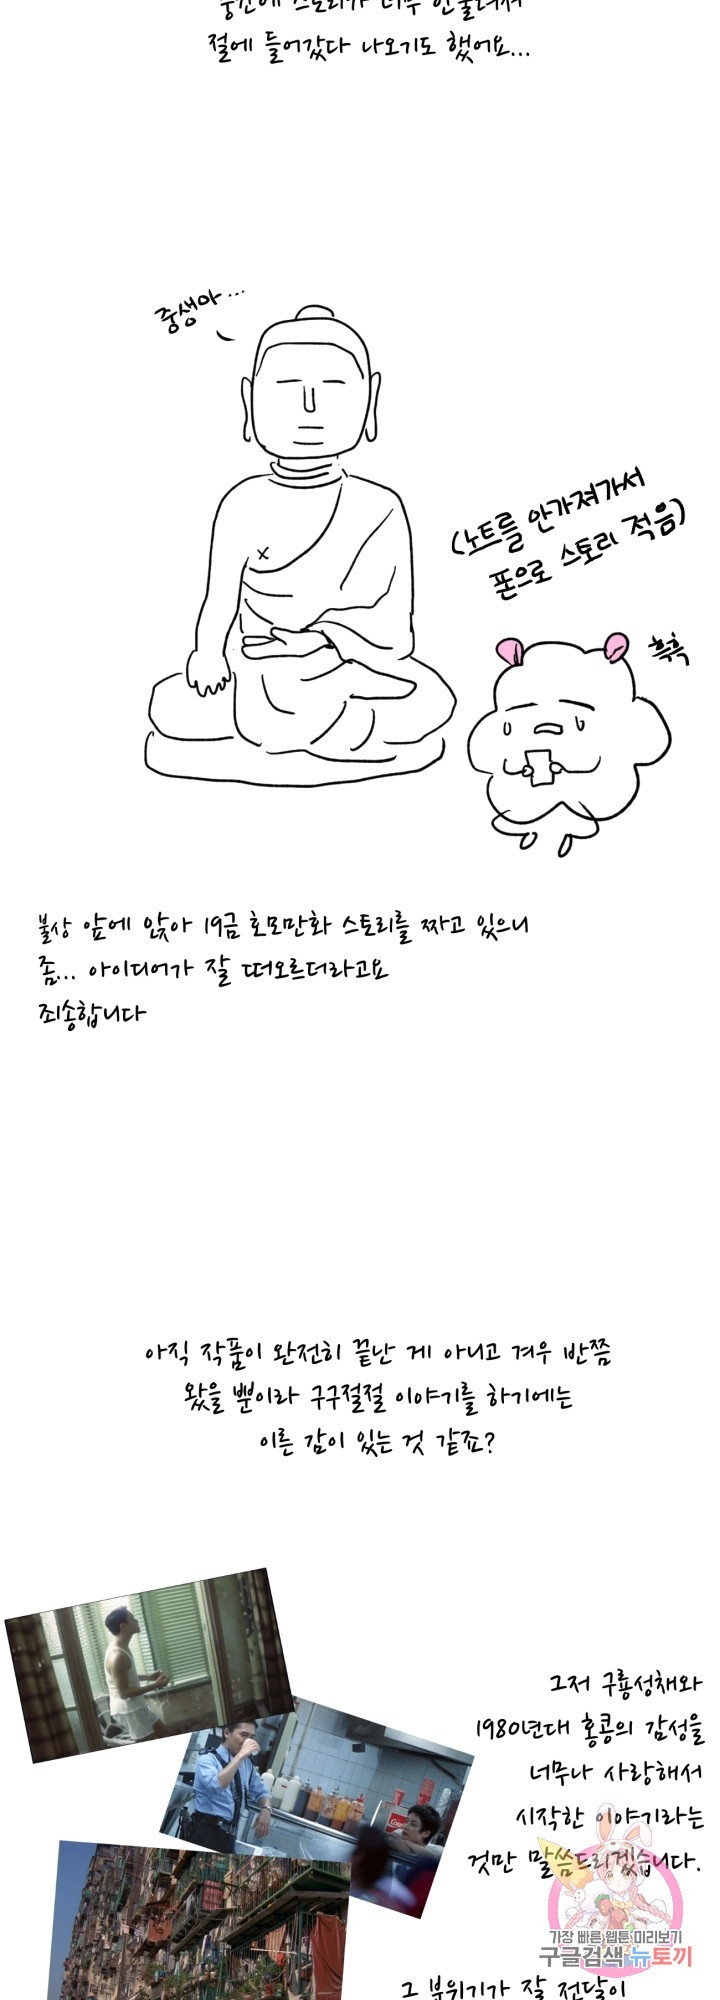 중간에 스토리가 너무 안풀려서
절에 들어갔다 나오기도 했어요...
중생아...
(노트를 안가져가서
폰으로 스토리 적음)
흑흑
불상 앞에 앉아 19금 호모만화 스토리를 짜고 있으니
좀... 아이디어가 잘 떠오르더라고요
죄송합니다
아직 작품이 완전히 끝난 게 아니고 겨우 반쯤
왔을 뿐이라 구구절절 이야기를 하기에는
이른 감이 있는 것 같죠?
그저 구룡성채와
1980년대 홍콩의 감성을
너무나 사랑해서
시작한 이야기라는
것만 말씀드리겠습니다.
가장 빠른 웹툰 미리보기
구글검색 뉴토끼
그 분위기가 잘 전달이